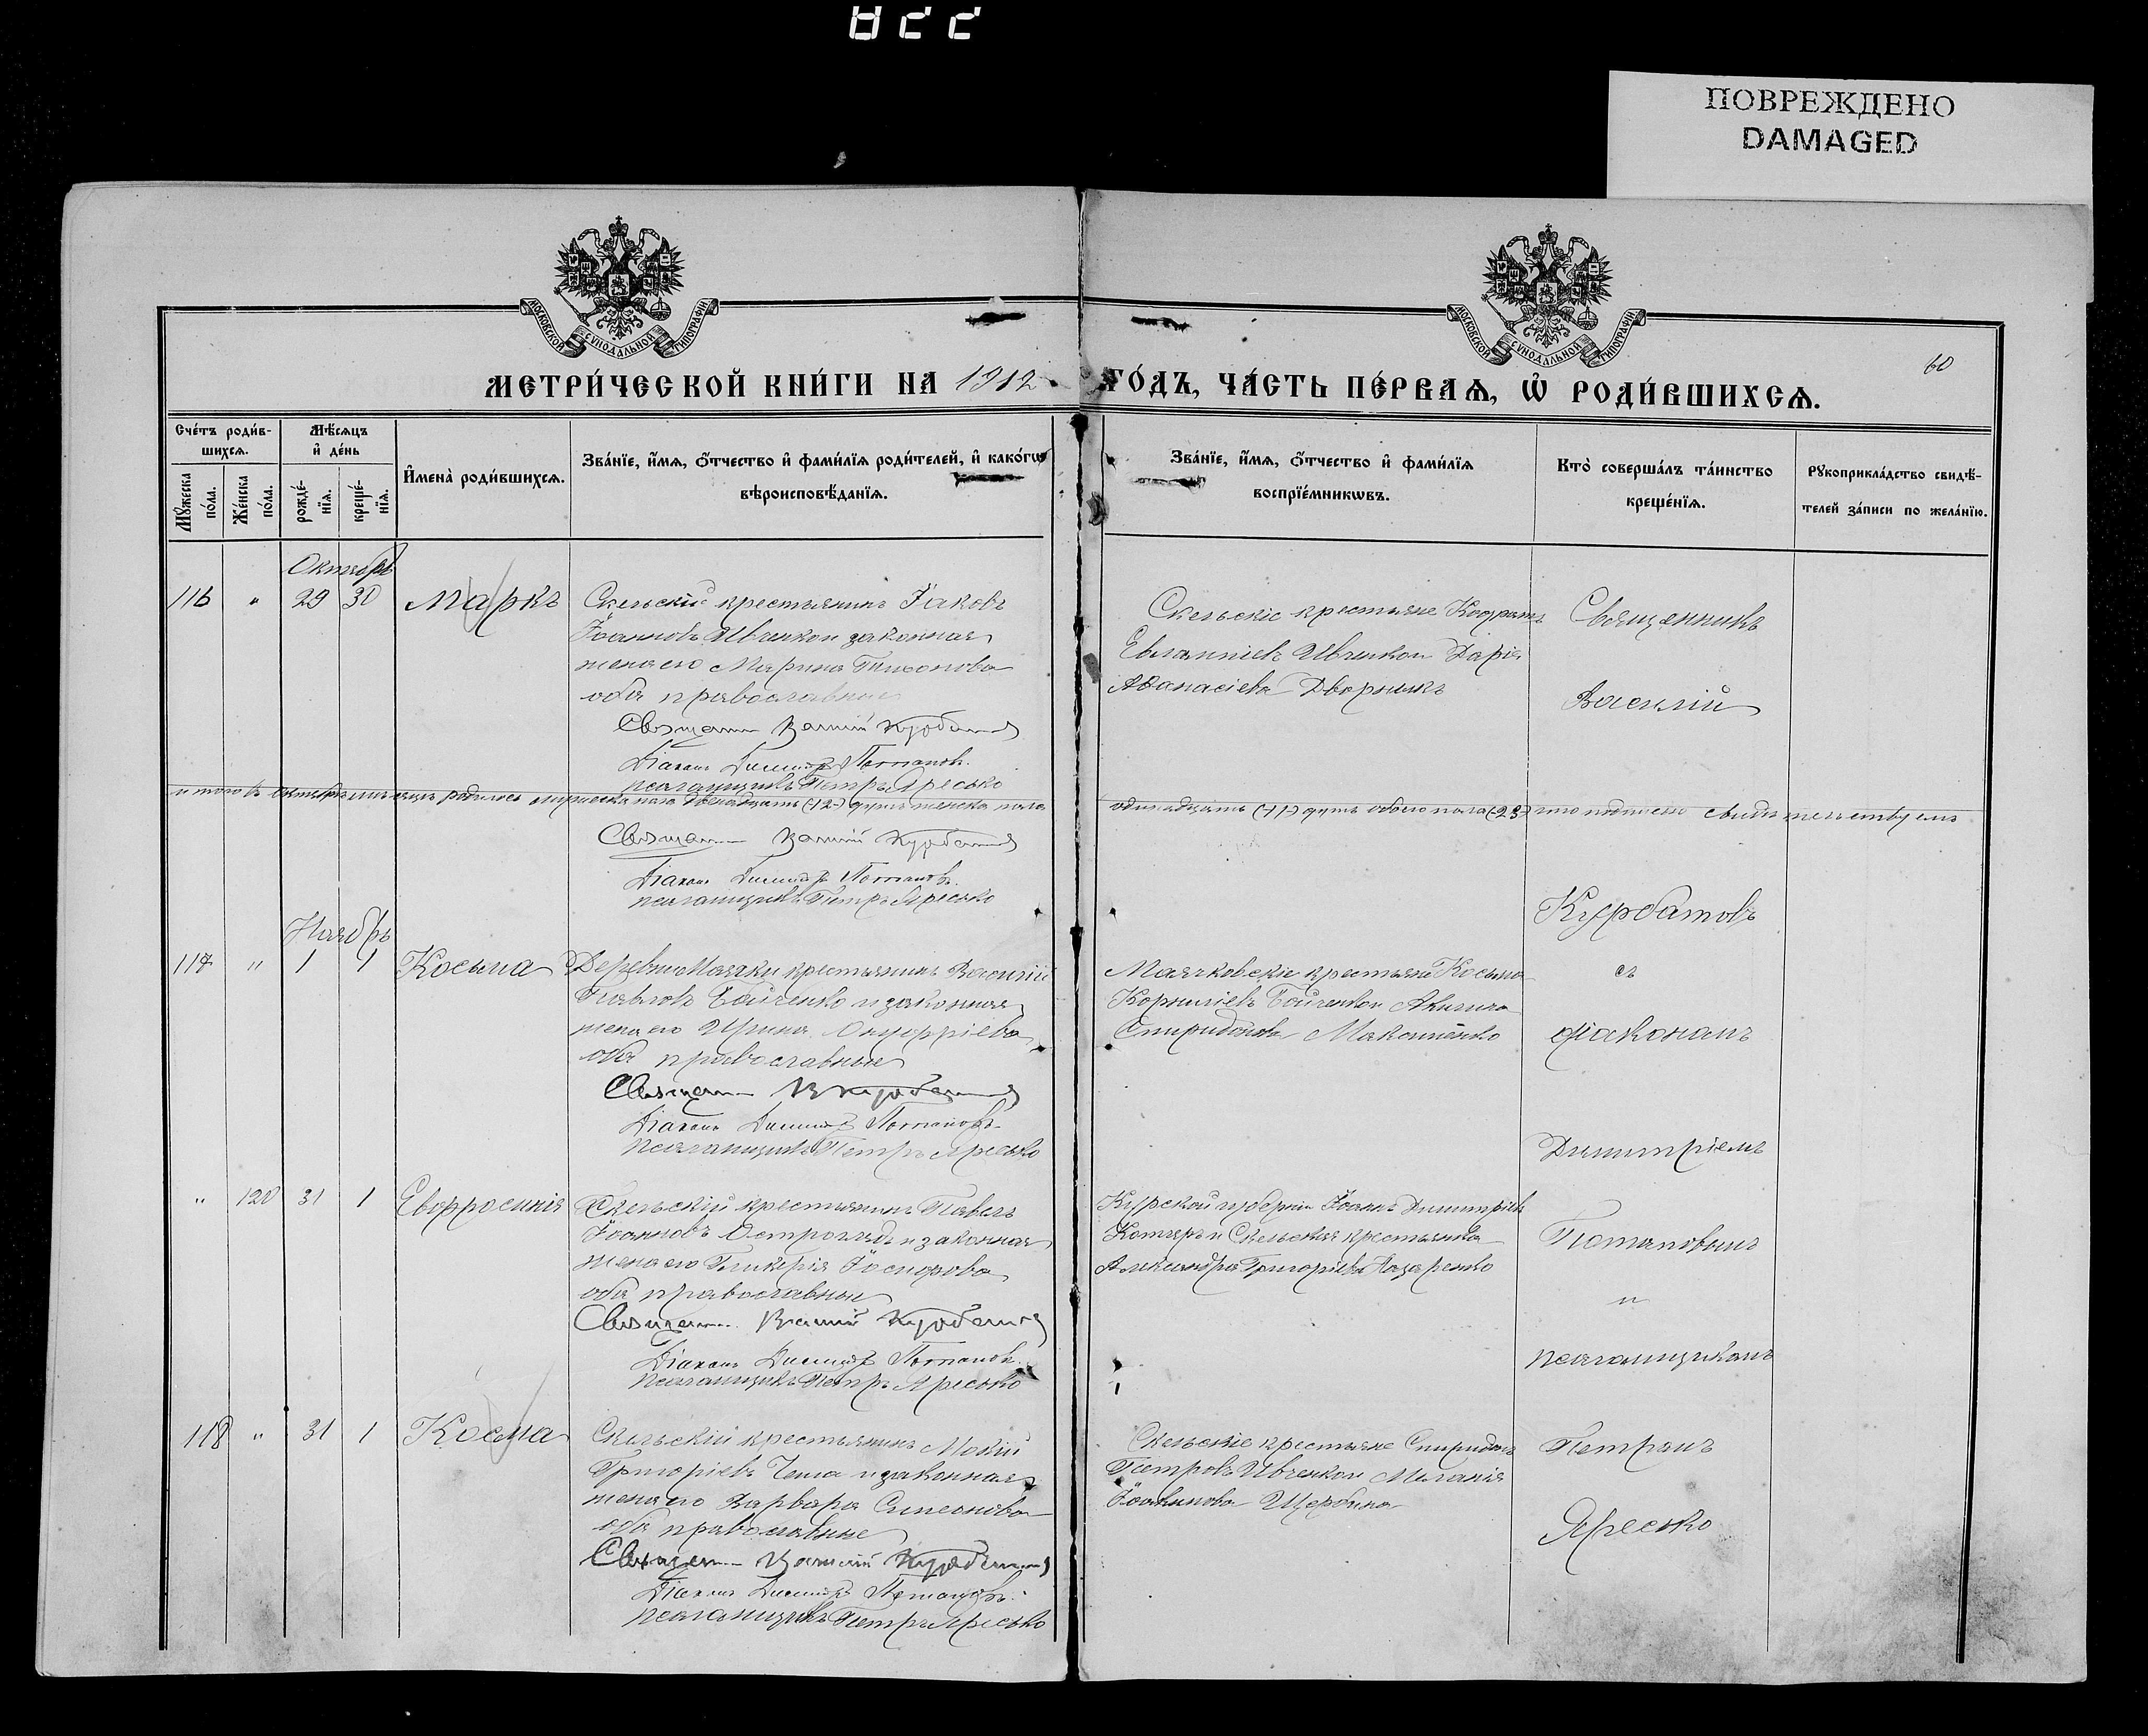 822
ПОВРЕЖДЕНО
DAMAGED
МОСКОВСКОЙ СУНОДАЛЬНОЙ ТИПОГРАФІИ
МОСКОВСКОЙ СУНОДАЛЬНОЙ ТИПОГРАФІИ
60
МЕТРИ́ЧЕСКОЙ КНИ́ГИ НА 1912 ГО́ДЪ, ЧА́СТЬ ПЕ́РВАѦ, Ѽ РОДИ́ВШИХСѦ.
Сче́тъ роди́в-
шихсѧ.
Мѣ́сѧцъ
и҆ де́нь
Мꙋ́жеска
по́ла.
Же́нска
по́ла.
рожде́-
нїѧ.
креще́-
нїѧ.
И҆мена̀ роди́вшихсѧ.
Зва́нїе, и҆́мѧ, ѻ҆́тчество и҆ фами́лїѧ роди́телей, и҆ како́гѡ
вѣроисповѣ́данїѧ.
Зва́нїе, и҆́мѧ, ѻ҆́тчество и҆ фами́лїѧ
воспрїе́мникѡвъ.
Кто̀ соверша́лъ та́инство
креще́нїѧ.
Рꙋкоприкла́дство свидѣ́-
телей за́писи по жела́нїю.
Октябрь
116 " 29 30 Маркъ
Скельскій крестьянинъ Іаковъ
Іоанновъ Ивченко и законная
жена его Марина
оба православные
Священникъ Василій Курбатовъ
Діаконъ Димитрій Потаповъ
псаломщикъ Петръ Яресько
Скельскіе крестьяне Кодратъ
Евлампіевъ Ивченко и Дарія
Аѳанасіева Дворникъ
Священникъ
Василій
Итого въ октябрѣ мѣсяцѣ родилось мужеска пола двѣнадцать (12) душъ женска пола
одинадцать (11) душъ обоего пола (23) что подписью свидѣтельствуемъ
Священникъ Василій Курбатовъ
Діаконъ Димитрій Потаповъ
псаломщикъ Петръ Яресько
Курбатовъ
Ноябрь
117 " 1 1 Косьма
Деревни Маячки крестьянинъ Василій
Павловъ Бойченко и законная
жена его Ирина Онуфріева
оба православные
Священникъ В Курбатовъ
Діаконъ Димитрій Потаповъ
псаломщикъ Петръ Яресько
Маячковскіе крестьяне Косьма
Корниліевъ Бойченко и Акилина
Спиридонова
съ
діакономъ
Димитріемъ
" 120 31 1 Евфросинія
Скельскій крестьянинъ Павелъ
Іоанновъ Остроглядъ и законная
жена его Гликерія
оба православные
Священникъ Василій Курбатовъ
Діаконъ Димитрій Потаповъ
псаломщикъ Петръ Яресько
Курской губерніи Іоаннъ Димитріевъ
Котляръ и Скельская крестьянка
Александра Григоріева Назаренко
Потаповымъ
и
псаломщикомъ
118 " 31 1 Косма
Скельскій крестьянинъ Мокій
Григоріевъ и законная
жена его Варвара Симеонова
оба православные
Священникъ Василій Курбатовъ
Діаконъ Димитрій Потаповъ
псаломщикъ Петръ Яресько
Скельскіе крестьяне Спиридонъ
Петровъ Ивченко и Меланія
Іоакимова Щербина
Петромъ
Яресько